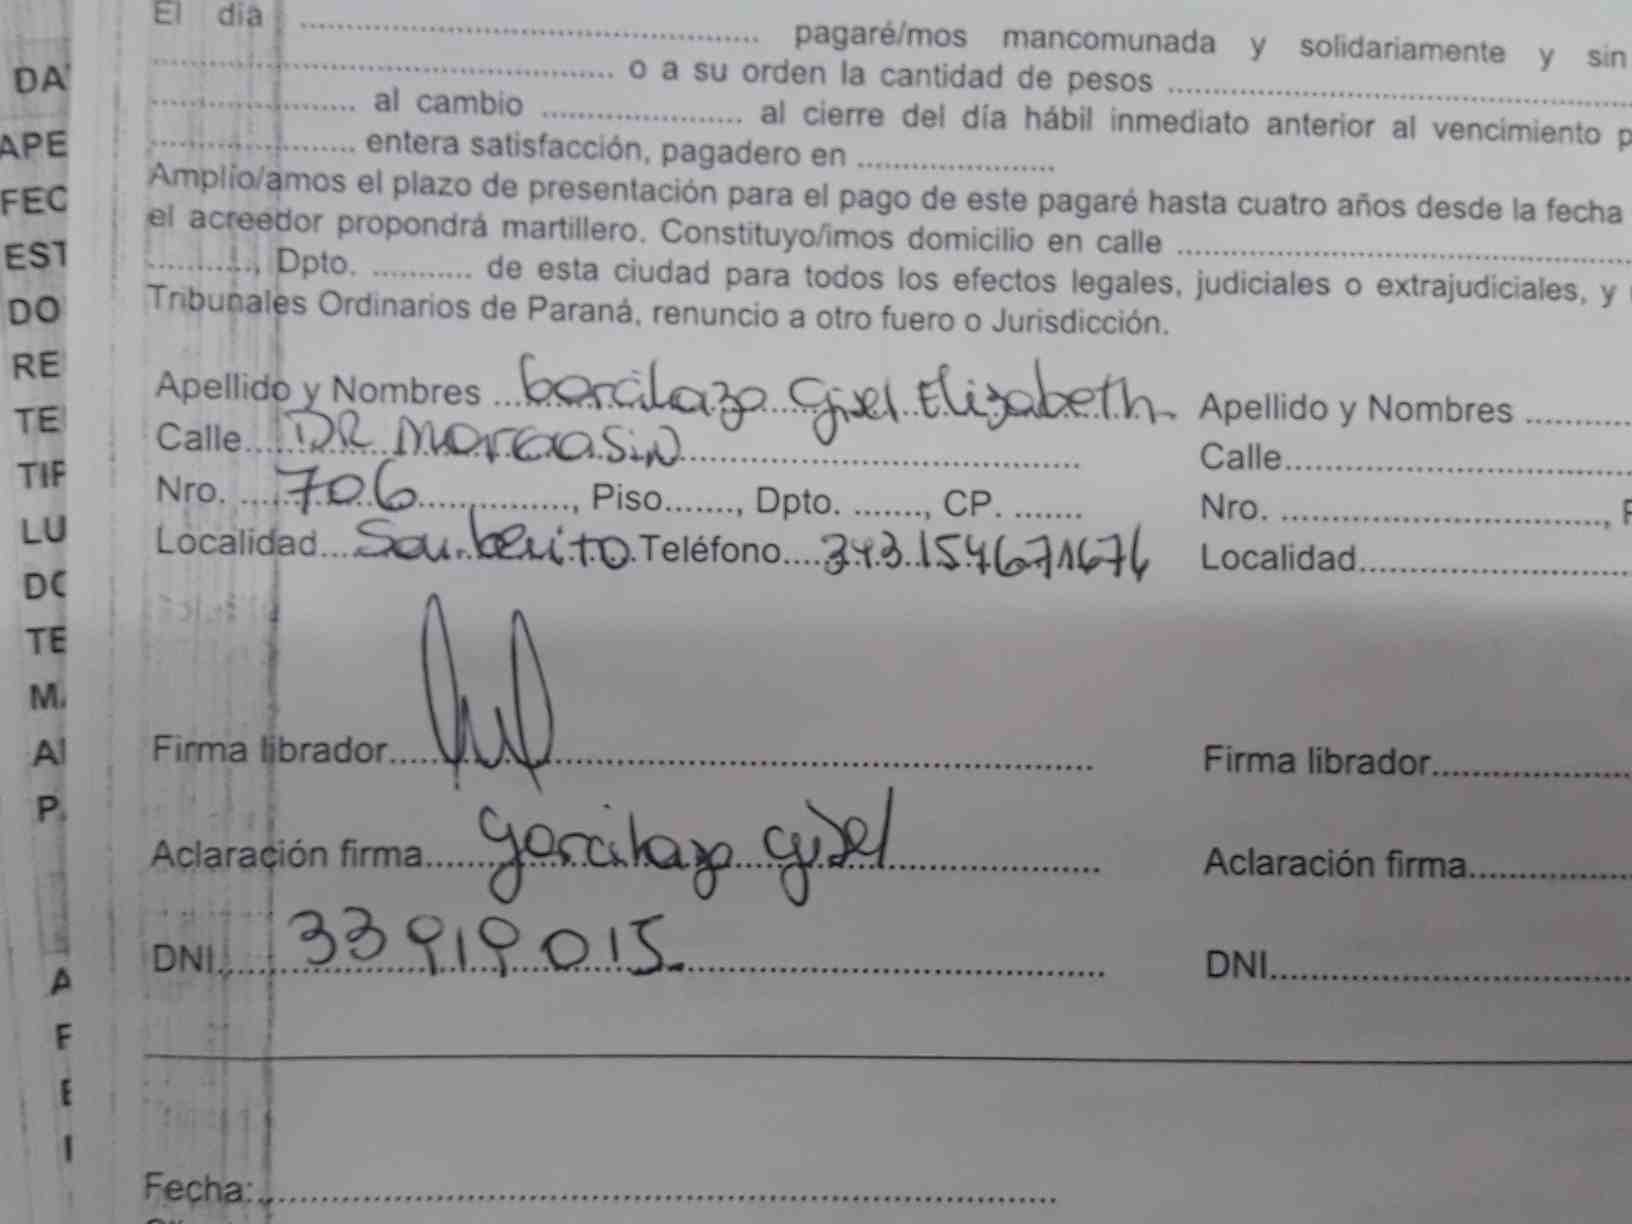 El día .......... pagaré/mos mancomunada y solidariamente y sin
.......... o a su orden la cantidad de pesos ..........
.......... al cambio .......... al cierre del día hábil inmediato anterior al vencimiento p
.......... entera satisfacción, pagadero en ..........
Amplio/amos el plazo de presentación para el pago de este pagaré hasta cuatro años desde la fecha
el acreedor propondrá martillero. Constituyo/imos domicilio en calle ..........
.........., Dpto. .......... de esta ciudad para todos los efectos legales, judiciales o extrajudiciales, y
Tribunales Ordinarios de Paraná, renuncio a otro fuero o Jurisdicción.
Apellido y Nombres ... Garcilazo Gisel Elizabeth Apellido y Nombres ..........
Calle.... DR .......... Calle..........
Nro. ....706.........., Piso......., Dpto. ......., CP. ....... Nro. ..........,
Localidad...San benito.Teléfono....343154671676 Localidad..........
Firma librador.......... Firma librador..........
Aclaración firma.......garcilazo gisel.......... Aclaración firma..........
DNI.......33919015.......... DNI..........
Fecha:..........
DA
APE
FEC
EST
DO
RE
TE
TIP
LU
DO
TE
MA
A
P
A
F
E